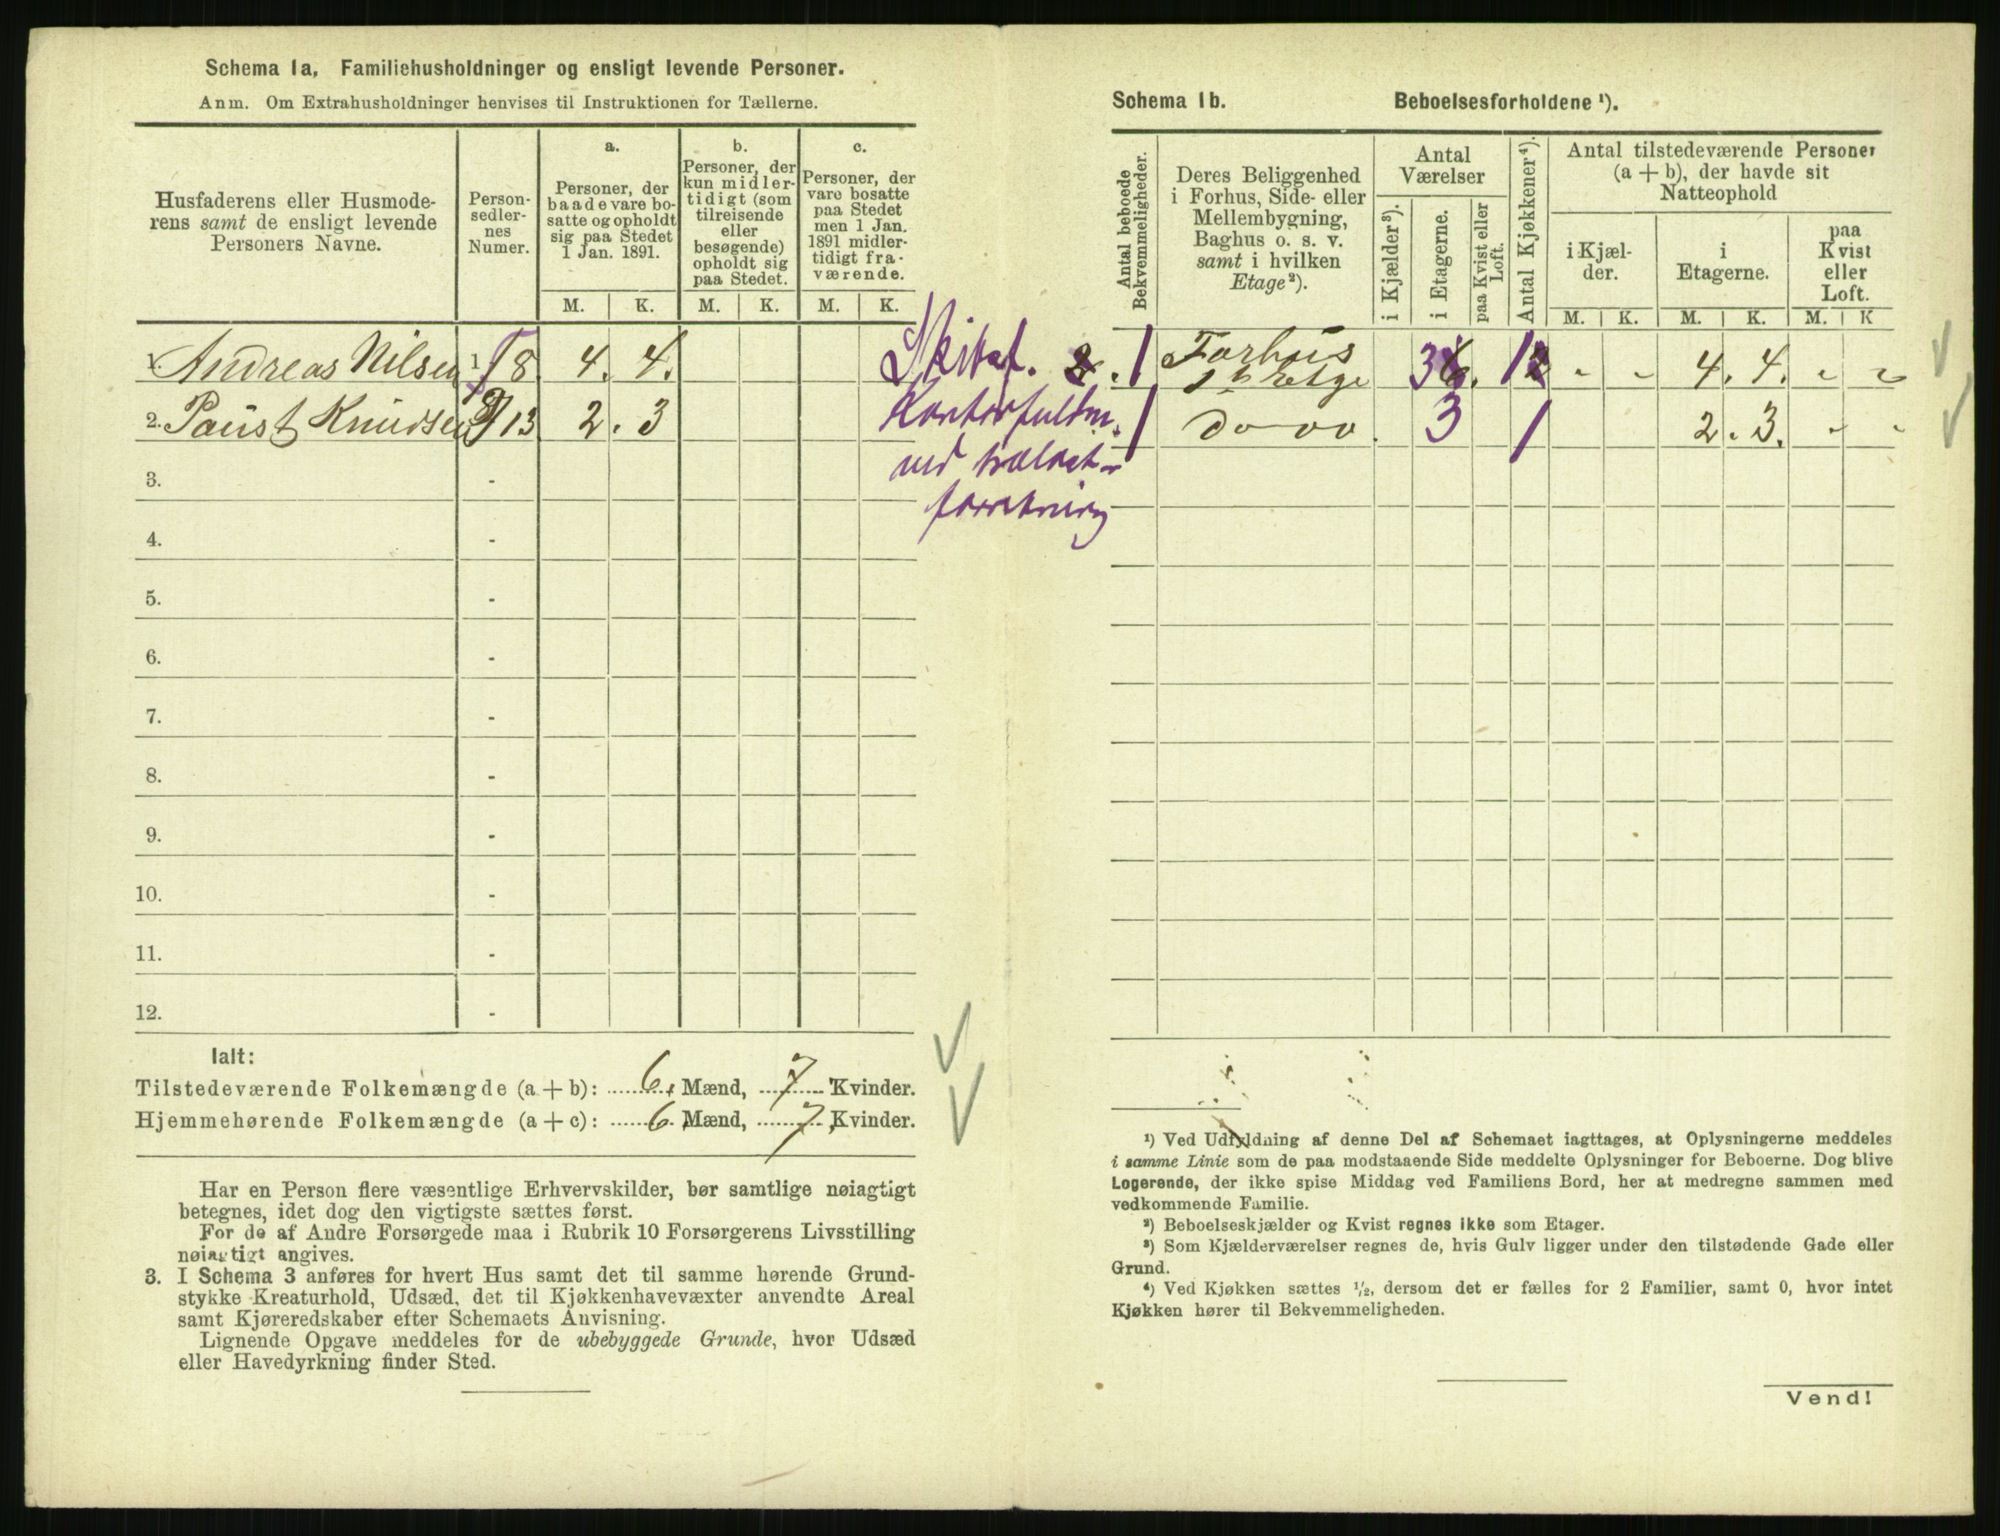 Schema 1a. Familiehusholdninger og ensligt levende Personer.
Anm. Om Extrahusholdninger henvises til Instruktionen for Tællerne.
Husfaderens eller Husmode-
rens samt de ensligt levende
Personers Navne.
Person-
sedler-
nes
Numer.
a.
Personer, der
baade vare bo-
satte og opholdt
sig paa Stedet
1 Jan. 1891.
b.
Personer, der
kun midler-
tidigt (som
tilreisende
eller
besøgende)
opholdt sig
paa Stedet.
c.
Personer, der
vare bosatte
paa Stedet
men 1 Jan.
1891 midler-
tidigt fra-
værende.
M. K. M. K. M. K.
1. Andreas Nilsen 1 8 4. 4.
2. Paust Knudsen 9 13 2. 3
3. -
4. -
5. -
6. -
7. -
8. -
9. -
10. -
11. -
12. -
Ialt:
Tilstedeværende Folkemængde (a + b): 6. Mænd, 7 Kvinder.
Hjemmehørende Folkemængde (a + c): 6 Mænd, 7, Kvinder.
Har en Person flere væsentlige Erhvervskilder, bør samtlige nøiagtigt
betegnes, idet dog den vigtigste sættes først.
For de af Andre Forsørgede maa i Rubrik 10 Forsørgerens Livsstilling
nøiagtigt angives.
3. I Schema 3 anføres for hvert Hus samt det til samme hørende Grund-
stykke Kreaturhold, Udsæd, det til Kjøkkenhavevæxter anvendte Areal
samt Kjøreredskaber efter Schemaets Anvisning.
Lignende Opgave meddeles for de ubebyggede Grunde, hvor Udsæd
eller Havedyrkning finder Sted.
ved trælast-
forretning
Schema 1b. Beboelsesforholdene ¹).
Antal beboede
Bekvemmeligheder.
Deres Beliggenhed
i Forhus, Side- eller
Mellembygning,
Baghus o. s. v.
samt i hvilken
Etage²).
Antal
Værelser
i Kjælder³).
i Etagerne.
paa Kvist eller
Loft.
Antal Kjøkkener⁴).
Antal tilstedeværende Personer
(a + b), der havde sit
Natteophold
i Kjæl-
der.
i
Etagerne.
paa
Kvist
eller
Loft.
M. K. M. K. M. K
1 Forhus
1ste Etage 3 1 - - 4. 4. - -
1 Do Do. 3 1 2. 3. - -
¹) Ved Udfyldning af denne Del af Schemaet iagttages, at Oplysningerne meddeles
i samme Linie som de paa modstaaende Side meddelte Oplysninger for Beboerne. Dog blive
Logerende, der ikke spise Middag ved Familiens Bord, her at medregne sammen med
vedkommende Familie.
²) Beboelseskjælder og Kvist regnes ikke som Etager.
³) Som Kjælderværelser regnes de, hvis Gulv ligger under den tilstødende Gade eller
Grund.
⁴) Ved Kjøkken sættes ½, dersom det er fælles for 2 Familier, samt 0, hvor intet
Kjøkken hører til Bekvemmeligheden.
Vend!